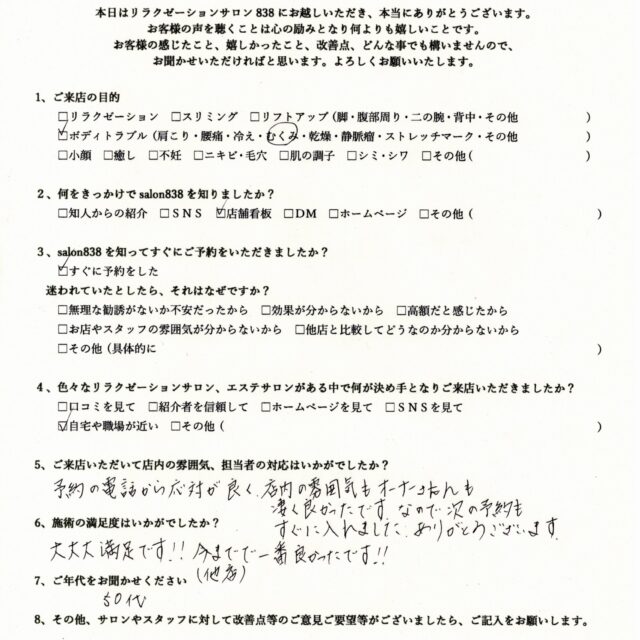 本日はリラクゼーションサロン 838 にお越しいただき、本当にありがとうございます。
お客様の声を聴くことは心の励みとなり何よりも嬉しいことです。
お客様の感じたこと、嬉しかったこと、改善点、どんな事でも構いませんので、
お聞かせいただければと思います。よろしくお願いいたします。
1、ご来店の目的
□リラクゼーション □スリミング □リフトアップ(脚・腹部周り・二の腕・背中・その他 )
☑ボディトラブル(肩こり・腰痛・冷え・むくみ・乾燥・静脈瘤・ストレッチマーク・その他 )
□小顔 □癒し □不妊 □ニキビ・毛穴 □肌の調子 □シミ・シワ □その他( )
2、何をきっかけで salon838 を知りましたか?
□知人からの紹介 □SNS ☑店舗看板 □DM □ホームページ □その他( )
3、salon838 を知ってすぐにご予約をいただきましたか?
☑すぐに予約をした
迷われていたとしたら、それはなぜですか?
□無理な勧誘がないか不安だったから □効果が分からないから □高額だと感じたから
□お店やスタッフの雰囲気が分からないから □他店と比較してどうなのか分からないから
□その他(具体的に )
4、色々なリラクゼーションサロン、エステサロンがある中で何が決め手となりご来店いただきましたか?
□口コミを見て □紹介者を信頼して □ホームページを見て □SNSを見て
☑自宅や職場が近い □その他( )
5、ご来店いただいて店内の雰囲気、担当者の対応はいかがでしたか?
予約の電話から応対が良く、店内の雰囲気もオーナーさんも
凄く良かったです。なので次の予約も
すぐに入れました。ありがとうございます。
6、施術の満足度はいかがでしたか?
大大大満足です!! 今までで一番良かったです!!
(他店)
7、ご年代をお聞かせください
50代
8、その他、サロンやスタッフに対して改善点等のご意見ご要望等がございましたら、ご記入をお願いします。